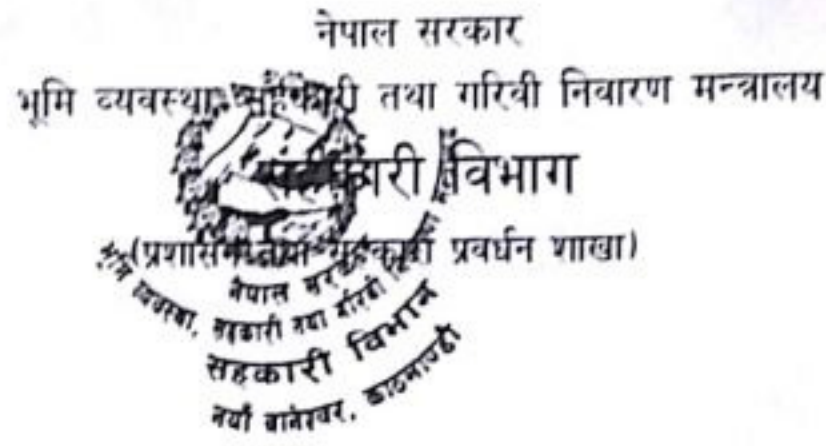 नेपाल सरकार
भूमि व्यवस्था, सहकारी तथा गरिवी निवारण मन्त्रालय
सहकारी विभाग
(प्रशासन तथा सहकारी प्रवर्धन शाखा)
नेपाल सरकार
भूमि व्यवस्था, सहकारी तथा गरिवी
सहकारी विभाग
नयाँ बानेश्वर, काठमाण्डौ